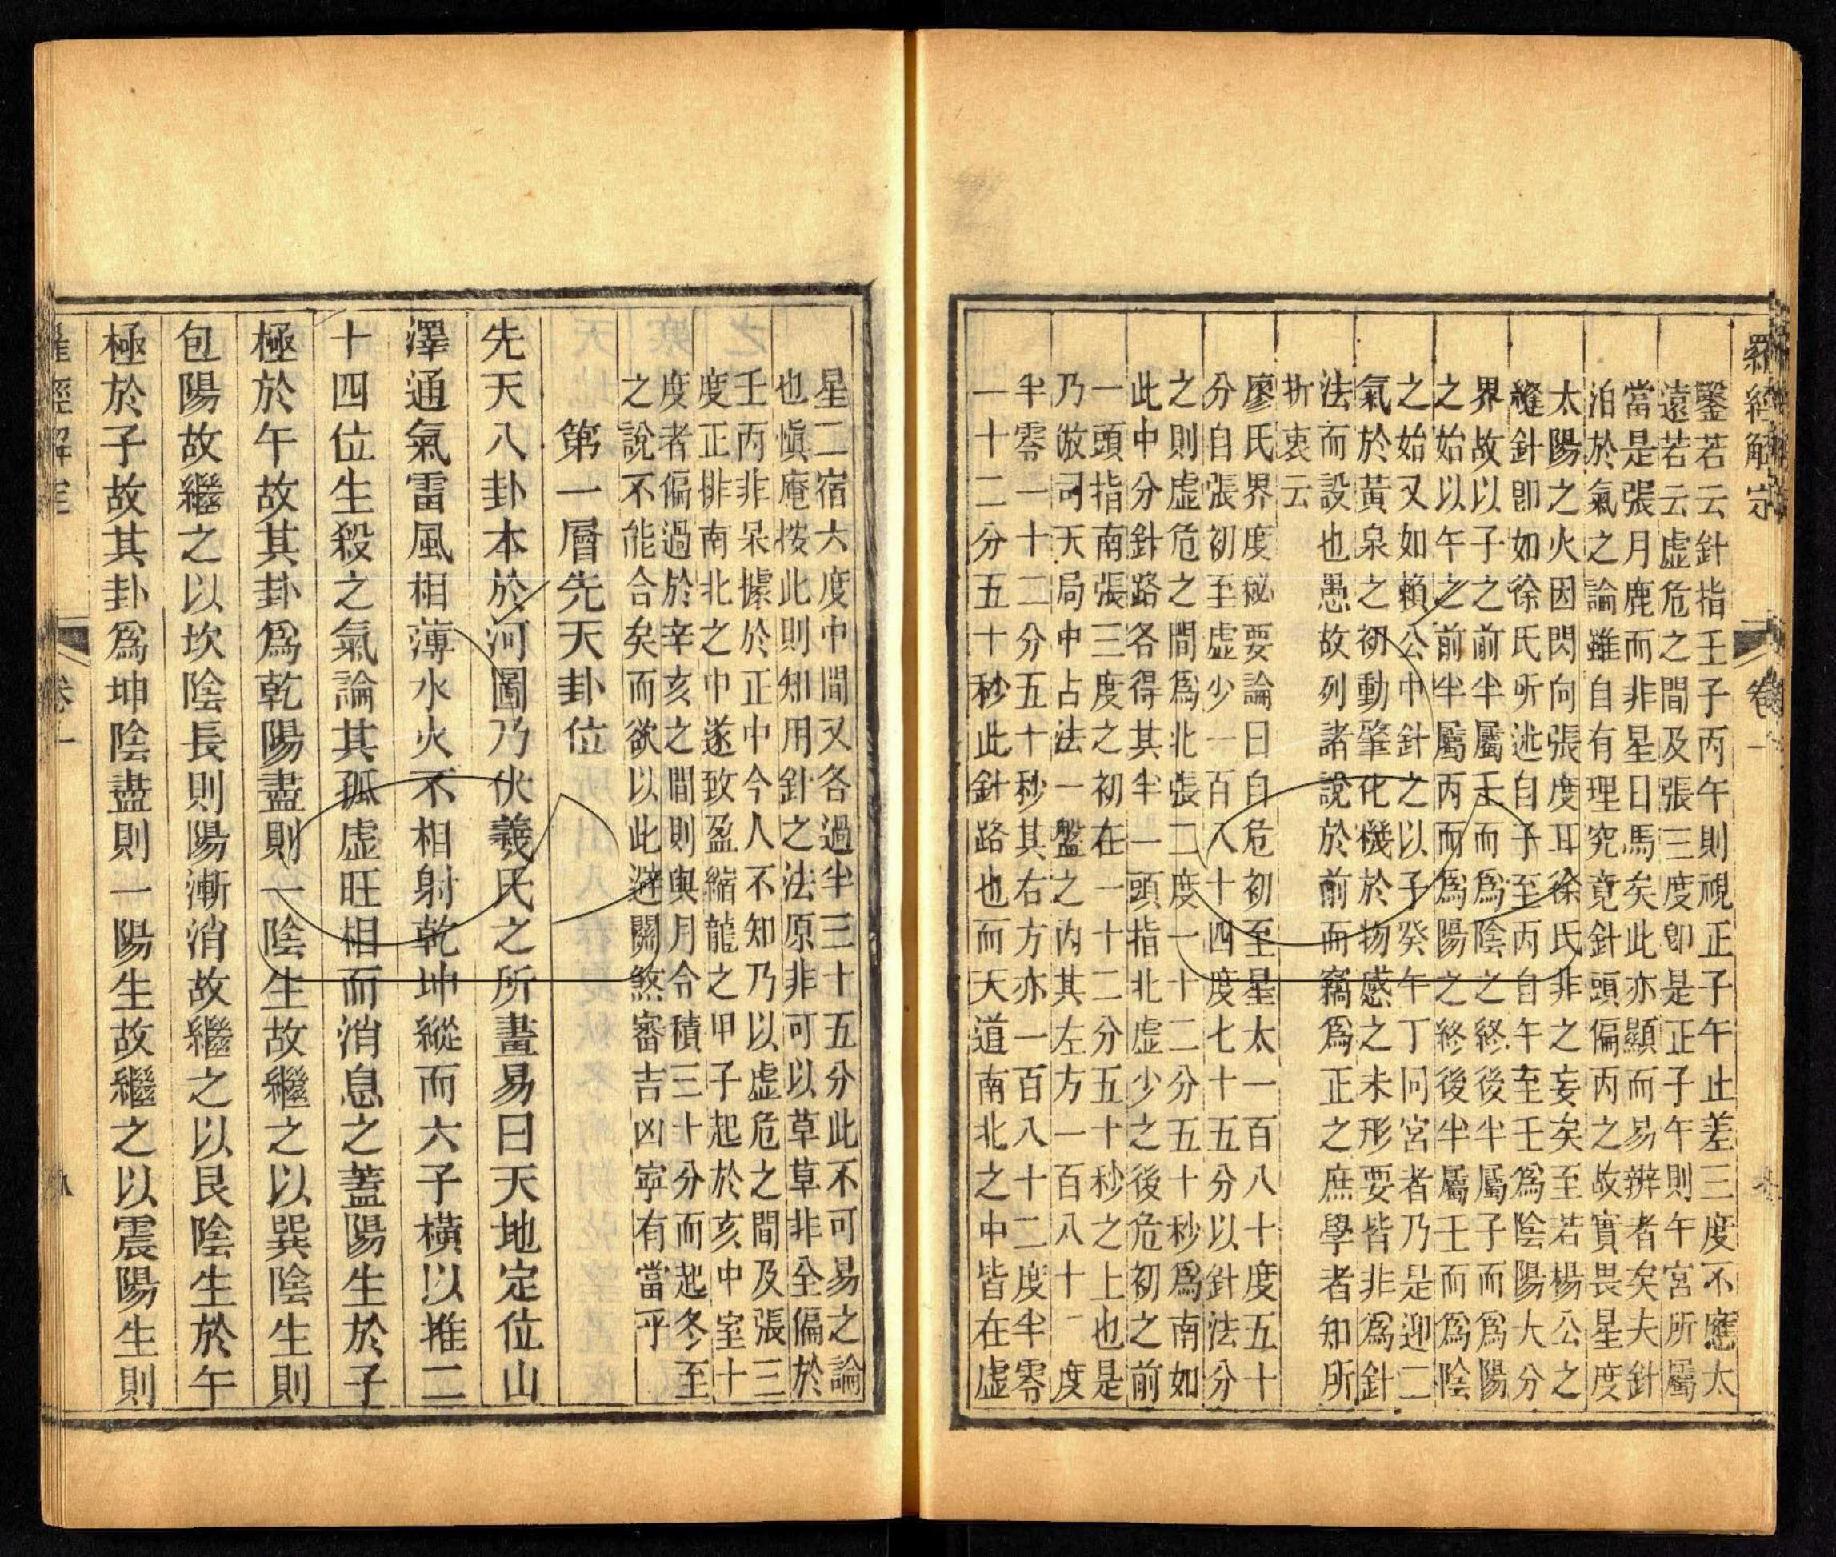 羅經解定 卷一
鑒若云針指壬子丙午則視正子午止差三度不應太
遠若云虛危之間及張三度卽是正子午則午宮所屬
當是張月鹿而非星日馬矣此亦顯而易辨者矣夫針
泊於氣之論雖自有理究竟針頭偏丙之故實畏星度
太陽之火因閃向張度耳徐氏非之妄矣至若楊公之
縫針卽如徐氏所述自子至丙自午至壬爲陰陽大分
界故以子之前半屬壬而爲陰之終後半屬子而爲陽
之始以午之前半屬丙而爲陽之終後半屬壬而爲陰
之始又如賴公中針之以子癸午丁同宮者乃是迎二
氣於黃泉之初動肇化機於物感之未形要皆非爲針
法而設也愚故列諸說於前而竊爲正之庶學者知所
折衷云
廖氏界度秘要論曰自危初至星太一百八十度五十
分自張初至虛少一百八十四度七十五分以針法分
之則虛危之間爲北張二度一十二分五十秒爲南如
此中分針路各得其半一頭指北虛少之後危初之前
一頭指南張三度之初在一十二分五十秒之上也是
乃倣司天局中占法一盤之內其左方一百八十二度
半零一十二分五十秒其右方亦一百八十二度半零
一十二分五十秒此針路也而天道南北之中皆在虛
星二宿大度中間又各過半三十五分此不可易之論
也愼庵按此則知用針之法原非可以草草非全偏於
壬丙非呆據於正中今人不知乃以虛危之間及張三
度正排南北之中遂致盈縮龍之甲子起於亥中室十
度者偏過於辛亥之間則與月令積三十分而起冬至
之說不能合矣而欲以此避關煞審吉凶寧有當乎
第一層先天卦位
先天八卦本於河圖乃伏羲氏之所畫易曰天地定位山
澤通氣雷風相薄水火不相射乾坤縱而六子橫以推二
十四位生殺之氣論其孤虛旺相而消息之蓋陽生於子
極於午故其卦爲乾陽盡則一陰生故繼之以巽陰生則
包陽故繼之以坎陰長則陽漸消故繼之以艮陰生於午
極於子故其卦爲坤陰盡則一陽生故繼之以震陽生則
羅經解定 卷一 八